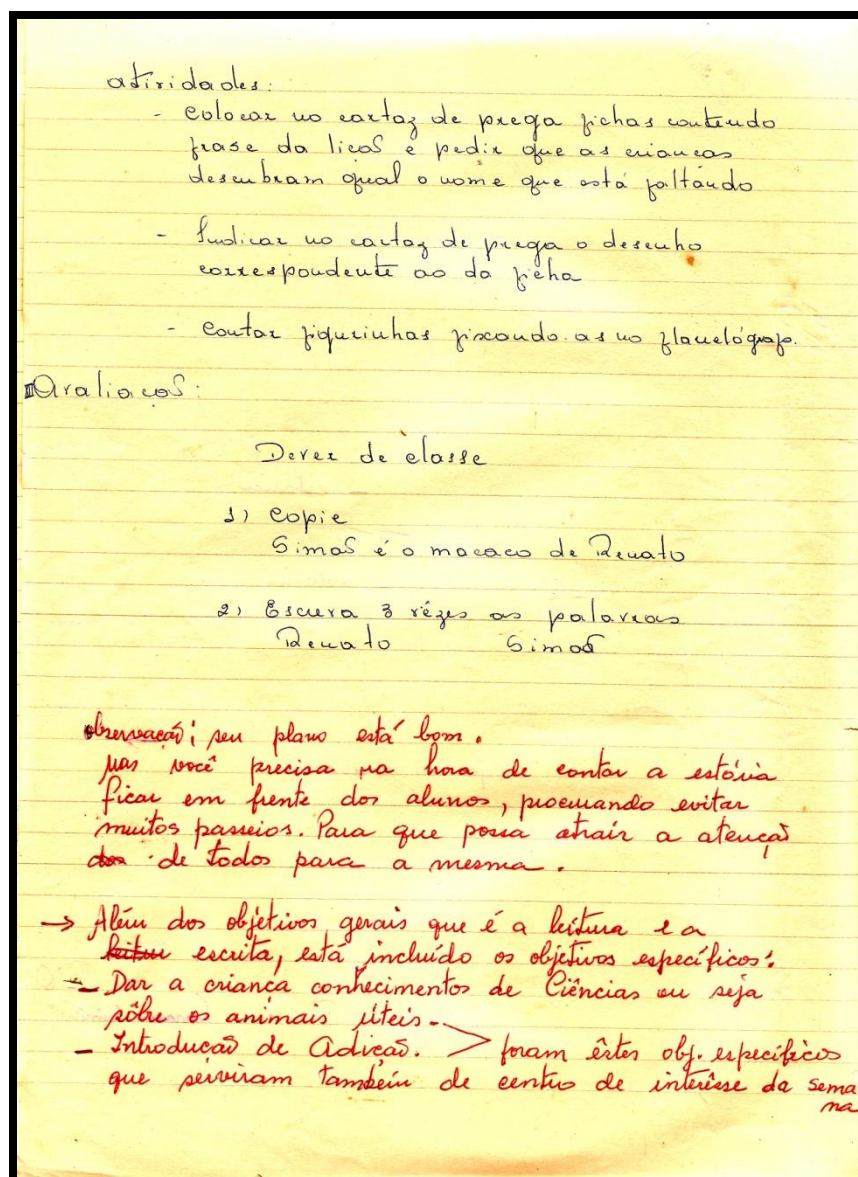 atividades:
- Colocar no cartaz de prega fichas contendo
frase da lição e pedir que as crianças
descubram qual o nome que está faltando
- Indicar no cartaz de prega o desenho
correspondente ao da ficha
- Contar figurinhas fixando-as no flanelógrafo.
Avaliação:
Dever de classe
1) Copie
Simão é o macaco de Renato
2) Escreva 3 vêzes as palavras
Renato Simão
observação: seu plano está bom.
Mas você precisa na hora de contar a estória
ficar em frente dos alunos, procurando evitar
muitos passeios. Para que possa atrair a atenção
dos de todos para a mesma.
→ Além dos objetivos gerais que é a leitura e a
leitur escrita, está incluído os objetivos específicos:
- Dar a criança conhecimentos de Ciências ou seja
sôbre os animais úteis -
- Introducão de Adição. > foram êstes obj. específicos
que serviram também de centro de interêsse da sema
na